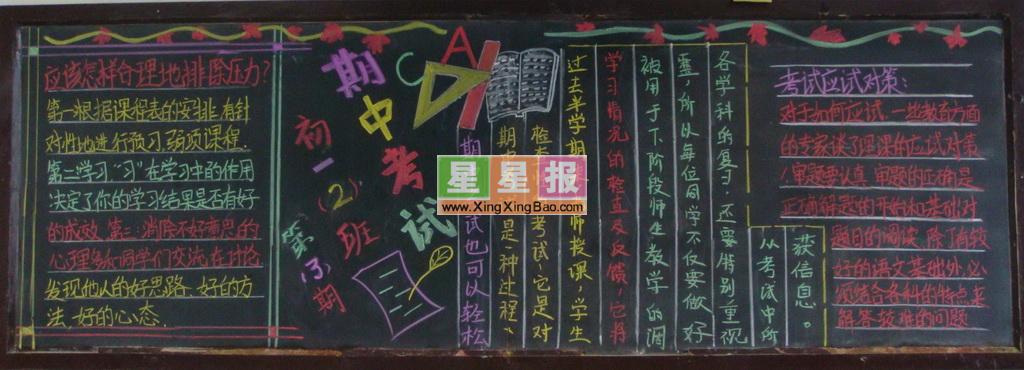 应该怎样合理地排除压力?
第一:根据课程表的安排,有针
对性地进行预习,弱项课程.
第二:学习“习”在学习中的作用
决定了你的学习结果是否有好
的成效.第三:消除不好意思的
心理多和同学们交流,在讨论
发现他人的好思路、好的方
法、好的心态.
期中考试
初一(2)班
第13期
CA
星星报
www.XingXingBao.com
期 试也可以轻松
期 是一种过程,
检 考试,它是对
过去半学期 师授课,学生
学习情况的检查及反馈,它将
被用于下阶段师生教学的调
整,所以每位同学不仅要做好
各学科的复习,还要特别重视
从考试中所
获信息。
考试应试对策:
对于如何应试,一些教育方面
的专家谈了理课的应试对策
审题要认真,审题的正确是
正确解题的开始和基础对
题目的阅读,除了有较
好的语文基础外,必
须结合各科的特点来
解答较难的问题